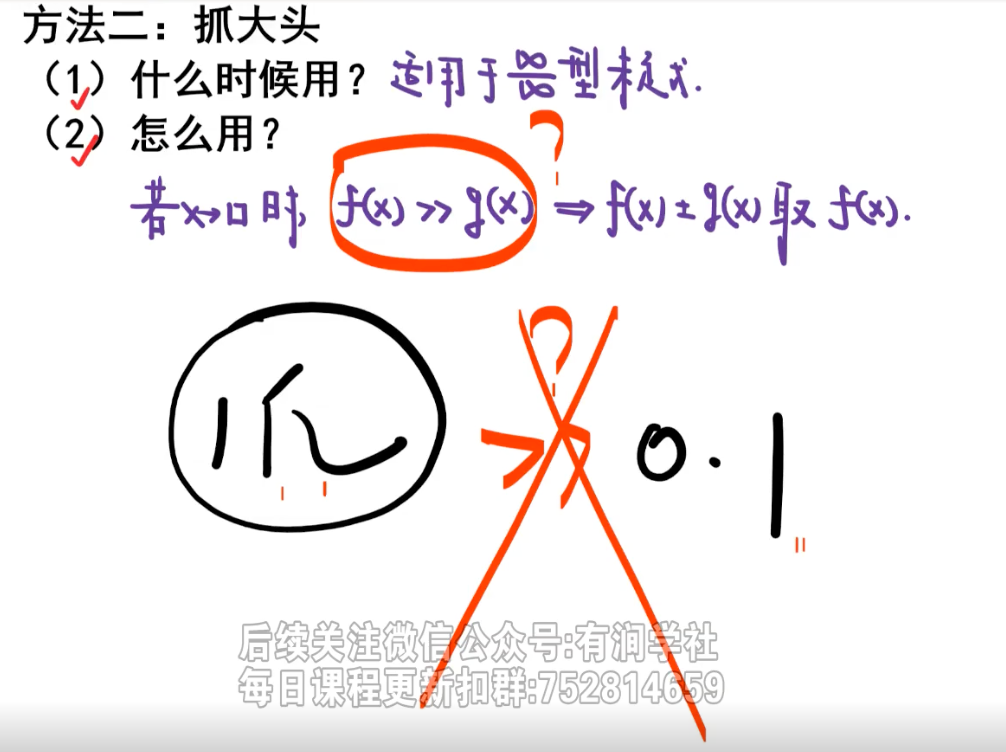 方法二：抓大头
（1）什么时候用？适用于 ∞/∞ 型未定式.
（2）怎么用？
?
若x→口时, f(x) >> g(x) ⇒ f(x) ± g(x) 取 f(x).
?
0.1
后续关注微信公众号:有涧学社
每日课程更新扣群:752814659